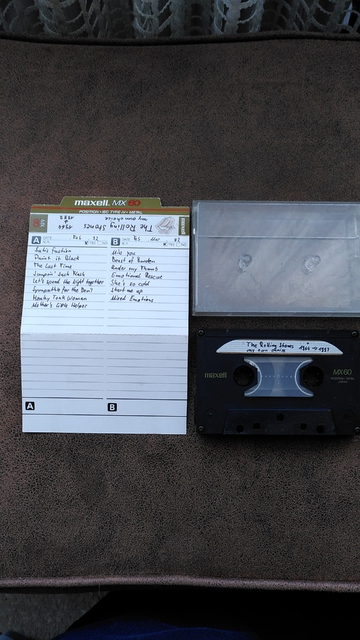 maxell MX 60
POSITION • IEC TYPE IV • METAL
The Rolling Stones
my own choice
A
B
Satisfaction
Paint it Black
The Last Time
Jumpin Jack Flash
Let's spend the night together
Sympathy for the Devil
Honky Tonk Woman
Mother's little Helper
Miss you
Beast of Burden
Under my Thumb
Emotional Rescue
She's so cold
Start me up
Mixed Emotions
A
B
The Rolling Stones
my own choice
maxell
MX60